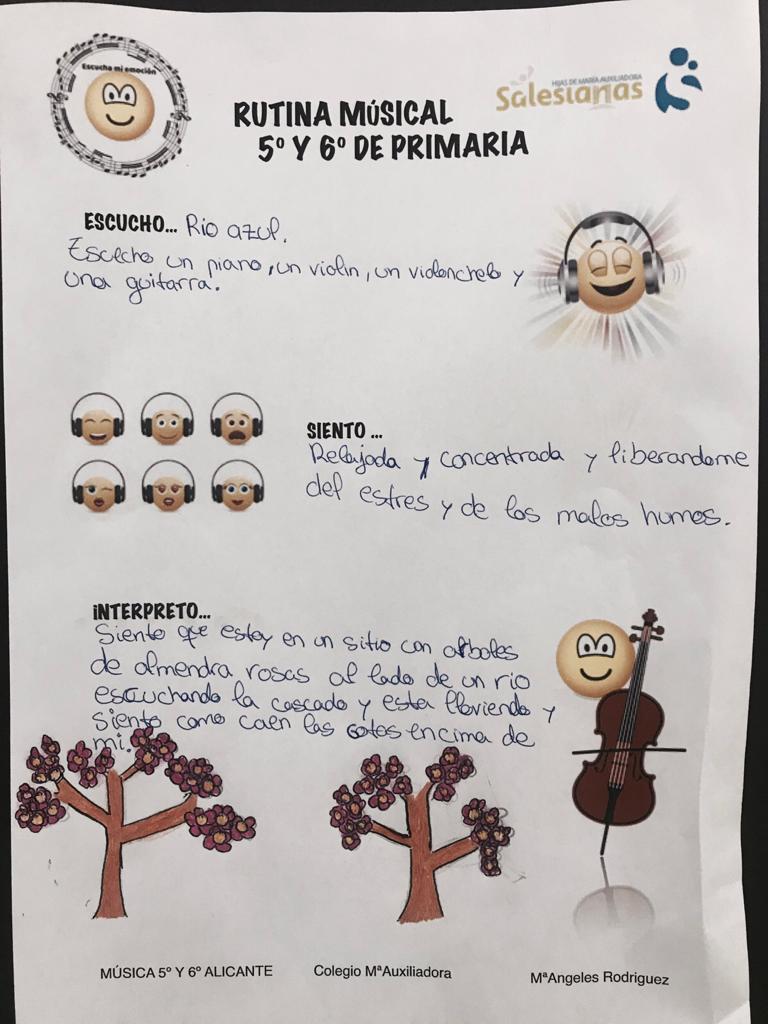 Escucha mi emoción
HIJAS DE MARÍA AUXILIADORA
Salesianas
RUTINA MÚSICAL
5º Y 6º DE PRIMARIA
ESCUCHO... Rio azul.
Escucho un piano, un violin, un violonchelo y
una guitarra.
SIENTO ...
Relajada y concentrada y liberandome
del estres y de los malos humos.
INTERPRETO...
Siento que estoy en un sitio con arboles
de almendra rosas al lado de un rio
escuchando la cascada y esta lloviendo y
siento como caen las gotas encima de
mi.
MÚSICA 5º Y 6º ALICANTE
Colegio MªAuxiliadora
MªAngeles Rodriguez